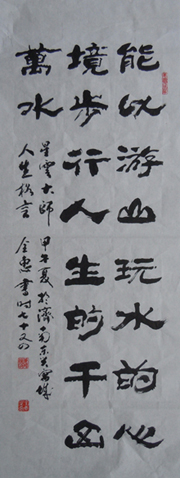 能以游山玩水的心
境步行人生的千山
萬水
星雲大師 甲午夏於濟南东
人生格言 書时七十又四